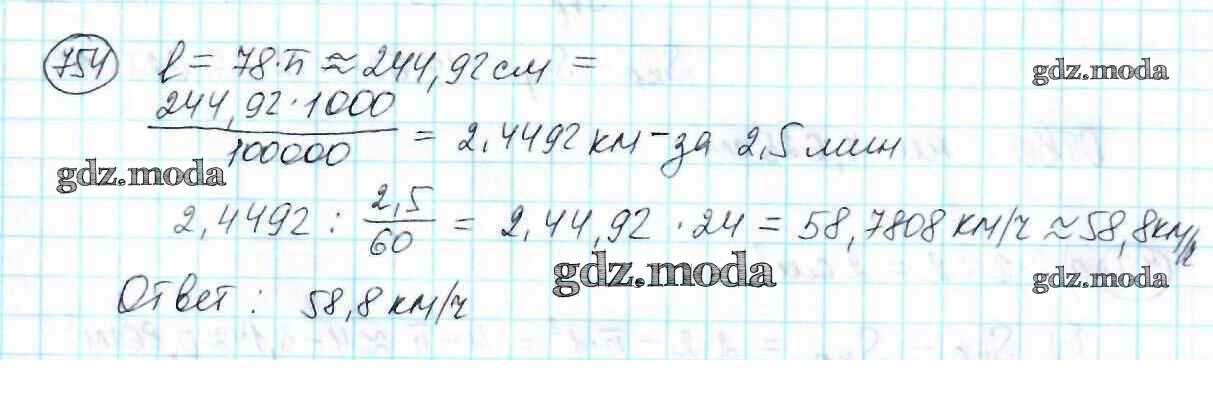 754 l = 78·π ≈ 244,92 см =
gdz.moda
244,92·1000 / 100000 = 2,4492 км - за 2,5 мин
gdz.moda
2,4492 : 2,5/60 = 2,44,92 · 24 = 58,7808 км/ч ≈ 58,8 км/ч
gdz.moda
gdz.moda
Ответ : 58,8 км/ч